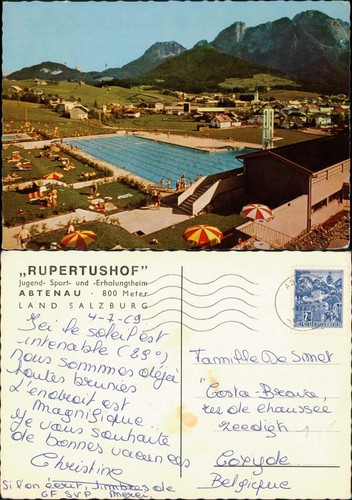 „RUPERTUSHOF”
Jugend- Sport- und -Erholungsheim
ABTENAU · 800 Meter
LAND SALZBURG
4-7-69
Ici le soleil est
intenable (28°)
nous sommes déjà
toutes brunies
L'endroit est
magnifique..
Je vous souhaite
de bonnes vacances
Christine
Si l'on écrit, timbres de
GF SVP. merci.
Famille De Smet
"Costa-Brava,
rue de chaussee
Zeedijk
Coxyde
Belgique